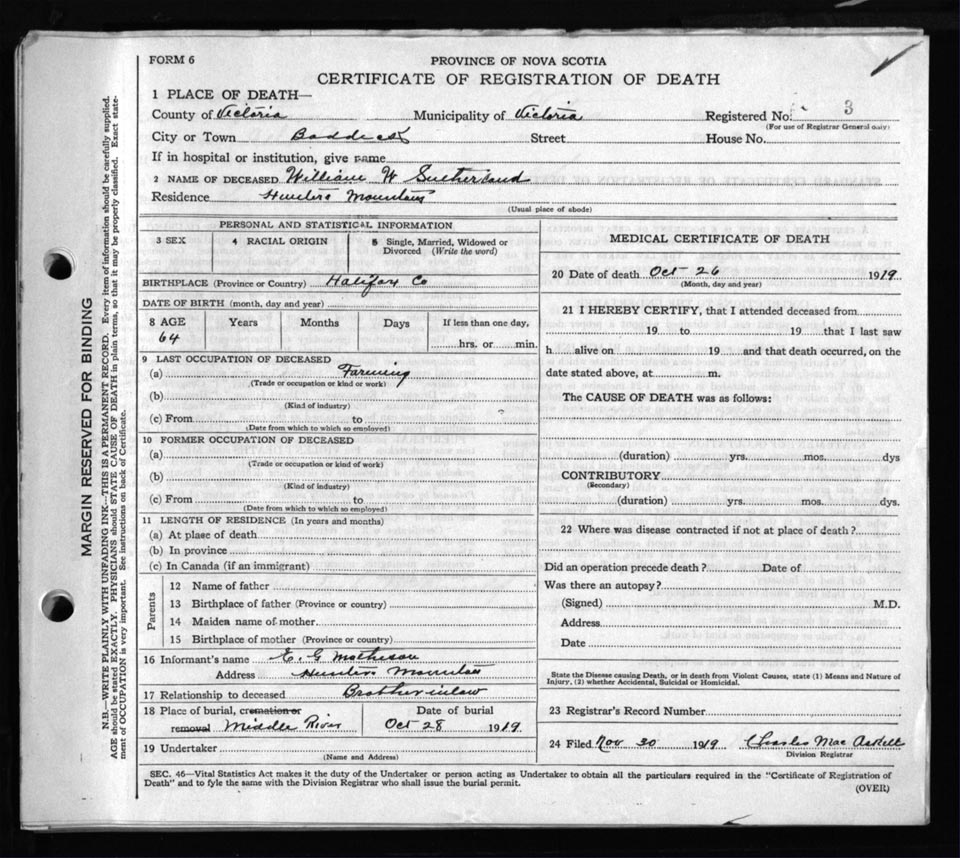 FORM 6
PROVINCE OF NOVA SCOTIA
CERTIFICATE OF REGISTRATION OF DEATH
1 PLACE OF DEATH—
County of Victoria Municipality of Victoria Registered No. 3
(For use of Registrar General only)
City or Town Baddeck Street House No.
If in hospital or institution, give name
2 NAME OF DECEASED William W Sutherland
Residence Hunters Mountain
(Usual place of abode)
PERSONAL AND STATISTICAL INFORMATION
3 SEX 4 RACIAL ORIGIN 5 Single, Married, Widowed or Divorced (Write the word)
BIRTHPLACE (Province or Country) Halifax Co
DATE OF BIRTH (month, day and year)
8 AGE Years Months Days If less than one day,
64 hrs. or min.
9 LAST OCCUPATION OF DECEASED
(a) Farming
(Trade or occupation or kind or work)
(b)
(Kind of industry)
(c) From to
(Date from which to which so employed)
10 FORMER OCCUPATION OF DECEASED
(a)
(Trade or occupation or kind of work)
(b)
(Kind of industry)
(c) From to
(Date from which to which so employed)
11 LENGTH OF RESIDENCE (In years and months)
(a) At place of death
(b) In province
(c) In Canada (if an immigrant)
Parents
12 Name of father
13 Birthplace of father (Province or country)
14 Maiden name of mother
15 Birthplace of mother (Province or country)
16 Informant's name E. G Matheson
Address Hunters Mountain
17 Relationship to deceased Brother in law
18 Place of burial, cremation or removal Middle River Date of burial Oct 28 1919
19 Undertaker
(Name and Address)
MEDICAL CERTIFICATE OF DEATH
20 Date of death Oct 26 1919
(Month, day and year)
21 I HEREBY CERTIFY, that I attended deceased from
19 to 19 that I last saw
h alive on 19 and that death occurred, on the
date stated above, at m.
The CAUSE OF DEATH was as follows:
(duration) yrs. mos. dys
CONTRIBUTORY
(Secondary)
(duration) yrs. mos. dys.
22 Where was disease contracted if not at place of death?
Did an operation precede death? Date of
Was there an autopsy?
(Signed) M.D.
Address
Date
State the Disease causing Death, or in death from Violent Causes, state (1) Means and Nature of
Injury, (2) whether Accidental, Suicidal or Homicidal.
23 Registrar's Record Number
24 Filed Nov 30 1919 Charles MacAskill
Division Registrar
SEC. 46—Vital Statistics Act makes it the duty of the Undertaker or person acting as Undertaker to obtain all the particulars required in the "Certificate of Registration of
Death" and to fyle the same with the Division Registrar who shall issue the burial permit.
(OVER)
MARGIN RESERVED FOR BINDING
N.B.—WRITE PLAINLY WITH UNFADING INK—THIS IS A PERMANENT RECORD. Every item of information should be carefully supplied.
AGE should be stated EXACTLY. PHYSICIANS should STATE CAUSE OF DEATH in plain terms, so that it may be properly classified. Exact state-
ment of OCCUPATION is very important. See instructions on back of Certificate.